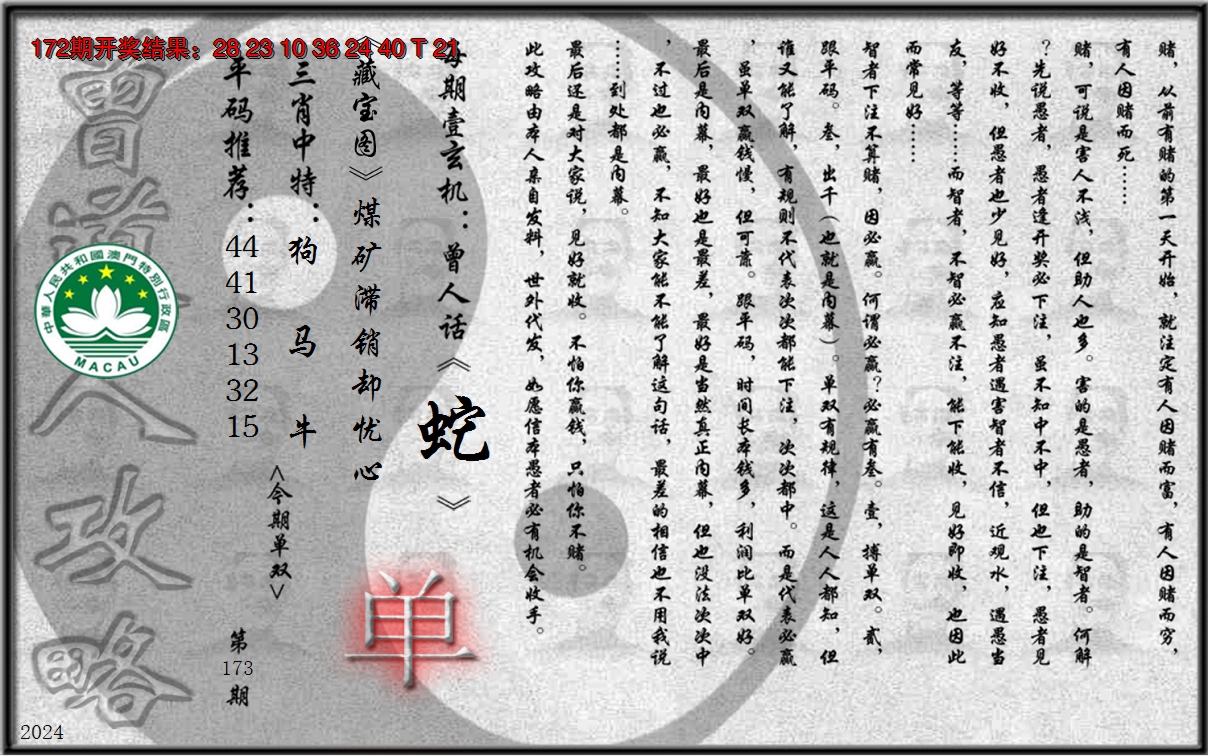 172期开奖结果：28 23 10 36 24 40 T 21
赌，从前有赌的第一天开始，就注定有人因赌而富，有人因赌而穷，
有人因赌而死……
赌，可说是害人不浅，但助人也多。害的是愚者，助的是智者。何解
？先说愚者，愚者逢开奖必下注，虽不知中不中，但也下注，愚者见
好不收，但愚者也少见好，应知愚者遇害智者不信，近观水，遇愚当
友，等等……而智者，不智必赢不注，能下能收，见好即收，也因此
而常见好……
智者下注不算赌，因必赢。何谓必赢？必赢有叁。壹，搏单双。贰，
跟平码。叁，出千（也就是内幕）。单双有规律，这是人人都知，但
谁又能了解，有规则不代表次次都能下注，次次都中。而是代表必赢
，虽单双赢钱慢，但可靠。跟平码，时间长本钱多，利润比单双好。
最后是内幕，最好也是最差，最好是当然真正内幕，但也没法次次中
，不过也必赢，不知大家能不能了解这句话，最差的相信也不用我说
……到处都是内幕。
最后还是对大家说，见好就收。不怕你赢钱，只怕你不赌。
此攻略由本人亲自发料，世外代发，如愿信本愚者必有机会收手。
每期壹玄机：曾人话《蛇》
《藏宝图》煤矿滞销却忧心
单
三肖中特：狗 马 牛
<今期单双>
平码推荐：44 41 30 13 32 15
第173期
曾道人攻略
中華人民共和國澳門特別行政區
MACAU
2024